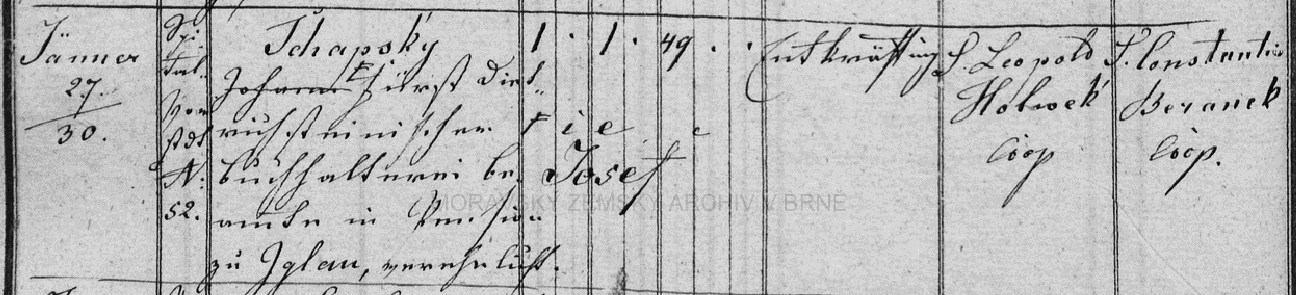 Jänner
27.
30.
Spi-
tal-
Vor
stdt
N:
52.
Tchapsky
Johann Fürst Diet
richsteinischer
buchhalterei be-
amte in Pension
zu Iglau, verehelicht.
1 . 1 . 49 . .
Josef
Entkräftung
P. Leopold
Holwek
Coop
P. Constantin
Beranek
Coop.
MORAVSKÝ ZEMSKÝ ARCHIV V BRNĚ